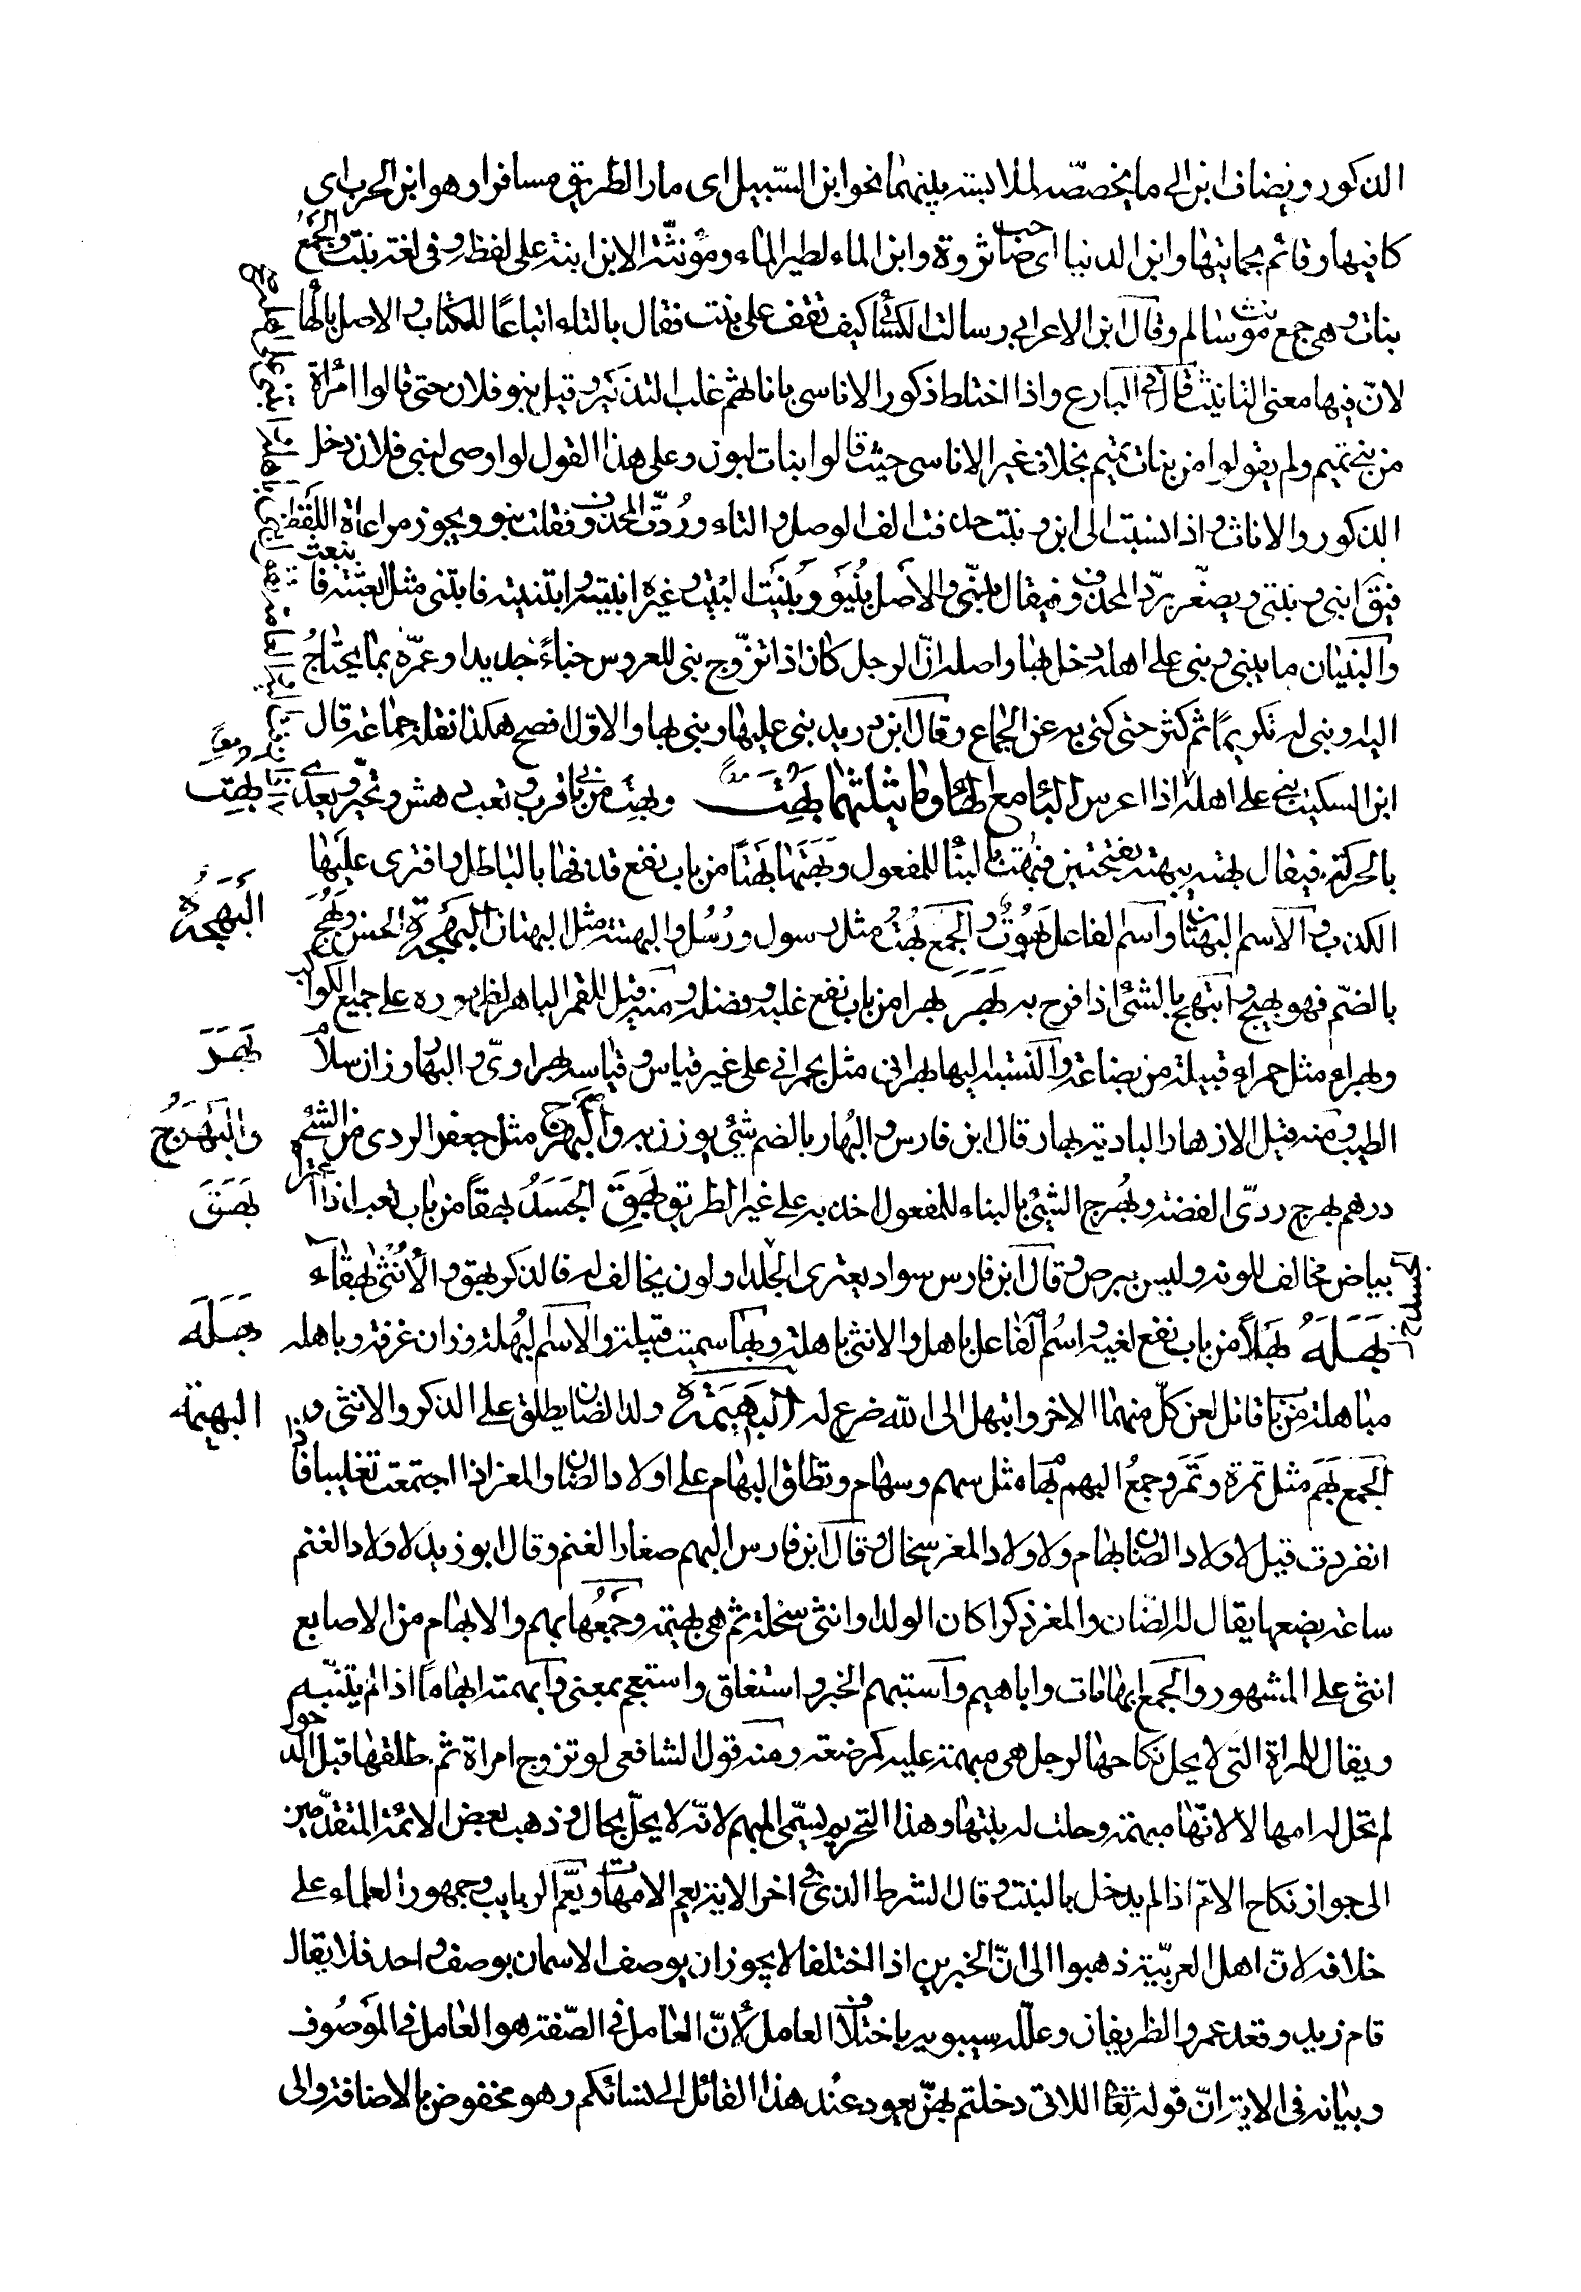 الذكور ويضاف ابن الى ما يخصصه لملابسة بينهما نحو ابن السّبيل اى مار الطريق مسافرا وهو ابن الحرب اى
كافيها وقائم بحمايتها وابن الدنيا اى صاحب ثروة وابن الماء لطير الماء ومؤنّثة الابن ابنة على لفظه وفى لغة بنت والجمع
بنات وهى جمع مؤنث سالم وقال ابن الاعرابى وسالت الكسائى كيف تقف على بنت فقال بالتاء اتباعًا للكتاب والاصل بالهاء
لانّ فيها معنى التانيث قال فى البارع واذا اختلط ذكور الاناسى باناثهم غلب التذكير وقيل بنو فلان حتى قالوا امرأة
من بنى تميم ولم يقولوا من بنات تميم بخلاف غير الاناسى حيث قالوا بنات لبون وعلى هذا القول لو اوصى لبنى فلان دخل
الذكور والاناث واذا نسبت الى ابن وبنت حذفت الف الوصل والتاء ورُدّت المحذوف فقلت بنوى ويجوز مراعاة اللفظ
فيق ابنى وبنتى ويصغّر بردّ المحذوف فيقال بُنىّ والاصل بُنَيْو وبَنَيْتُ البيت وغيره ابنيه وابتنيته فابتنى مثل بعثته فانبعث
والبنيان ما يبنى وبنى على اهله دخل بها واصله انّ الرجل كان اذا تزوّج بنى للعروس خباءً جديدا وعمّره بما يحتاج
اليه وبنى له تكريمًا ثم كثر حتى كنى به عن الجماع وقال ابن دريد بنى عليها وبنى بها والاوّل افصح هكذا نقله جماعة قال
ابن السكيت بنى على اهله اذا اعرس البامع الهاء وما يثلثهما بَهِتَ وبهت من بابى قرب وتعب دهش وتحيّر ويعدى
بهت
بالحركة فيقال بهته يبهته بفتحتين فبهت بالبناء للمفعول وبَهَتَها بَهْتًا من باب نفع قذفها بالباطل وافترى عليها
الكذب والاسم البهتان واسم الفاعل بَهُوتٌ والجمع بُهُت مثل رسول ورُسُل والبهتة مثل البهتان البَهْجَة الحسن وبَهُج
البَهْجَةُ
بالضمّ فهو بهيج وابتهج بالشئ اذا فرح به بَهَرَ بهرا من باب نفع غلبه وفضله ومنه قيل للقمر الباهر لظهوره على جميع الكواكب
وبهراء مثل حمراء قبيلة من قضاعة والنسبة اليها بهرانى مثل بحرانى على غير قياس وقياسه بهراوىّ والبهار وزان سلام
بَهَرَ
الطيب ومنه قيل لازهار البادية بهار قال ابن فارس والبُهار بالضم شئ يوزن به والبهرج مثل جعفر الردى من الشئ
والبَهْرَجُ
درهم بهرج ردىّ الفضة وبُهرج الشئ بالبناء للمفعول اخذ به على غير الطريق بَهِقَ الجَسَدُ بهقاً من باب تعب اذا اعتراه
بَهَقَ
بياض مخالف للونه وليس ببرص وقال ابن فارس سواد يعترى الجلد او لون يخالف لونه فالذكر ابهق والاُنثى بهقاء
بَهَلَهُ بَهْلاً من باب نفع لعنه واسُم الفاعل باهل والانثى باهلة وبها سميت قبيلة والاسم البُهلة وزان غرفة وباهله
بَهَلَه
مباهلة من باب قاتل لعن كلّ منهما الاخر وابتهل الى الله ضرع له البَهْمَةُ ولد الضان يطلق على الذكر والانثى و
البهيمة
الجمع بَهْم مثل تمرة وتَمْر وجمعُ البهم بِهام مثل سهم وسهام وتطلق البهام على اولاد الضان والمعز اذا اجتمعت تغليبا فاذا
انفردت قيل لاولاد الضان بهام ولاولاد المعز سخال وقال ابن فارس البهم صغار الغنم وقال ابو زيد لاولاد الغنم
ساعة يضعها يقال له الضان والمعز ذكرا كان الولد او انثى سخلة ثم هى بهيمة وجَمْعُها بهم والابهام من الاصابع
انثى على المشهور والجمع ابهامات واباهيم واستبهم الخبر واستغلق واستعجم بمعنى وابهمته ابهاماً اذا لم يتنبّه
ويقال للمراة التى لا يحل نكاحها لرجل هى مبهمة عليه كمرضعته ومنه قول الشافعى لو تزوج امراة ثم طلقها قبل الدخول
لم تحل له امها لا لانّها مبهمة وحلت له بنتها وهذا التحريم يسمّى المبهم لانّه لا يحلّ بحال وذهب بعض الائمة المتقدّمين
الى جواز نكاح الامّ اذا لم يدخل بالبنت وقال الشرط الذى فى اخر الاية يعم الامهات ويعمّ الربايب وجمهور العلماء على
خلافه لانّ اهل العربيّة ذهبوا الى انّ الخبرين اذا اختلفا لا يجوز ان يوصف الاسمان بوصف واحد فلا يقال
قام زيد وقعد عمرو الظريفان وعلّله سيبويه باختلاف العامل لانّ العامل فى الصّفة هو العامل فى المَوصُوف
وبيانه فى الاية انّ قوله تعالى اللاتى دخلتم بهنّ يعود عند هذا القائل الى نسائكم وهو مخفوض بالاضافة والى